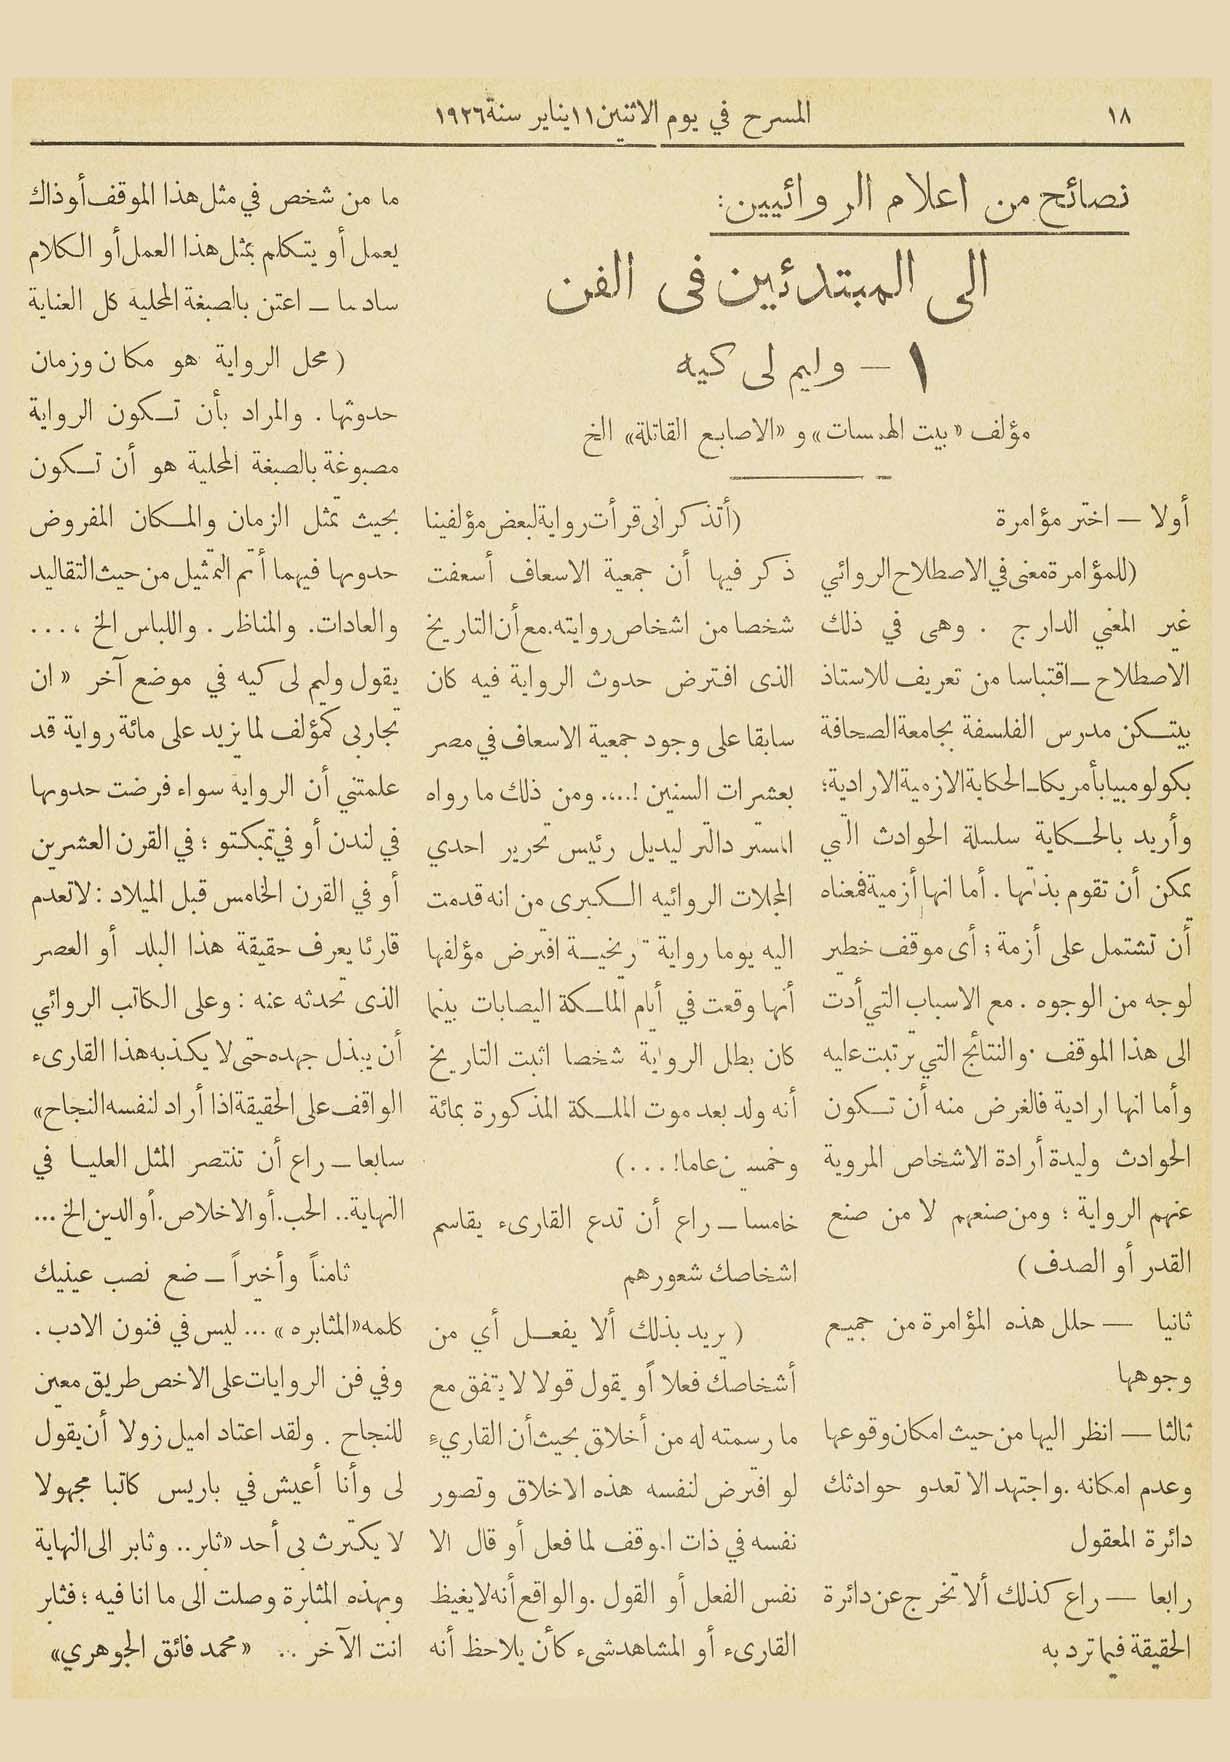 ١٨
المسرح في يوم الاثنين ١١ يناير سنة ١٩٢٦
نصائح من اعلام الروائيين:
الى المبتدئين فى الفن
١ — وليم لى كيه
مؤلف «بيت الهمسات» و «الاصابع القاتلة» الخ
أولا — اختر مؤامرة
(للمؤامرة معنى في الاصطلاح الروائي
غير المغني الدارج . وهى في ذلك
الاصطلاح — اقتباسا من تعريف للاستاذ
بيتكن مدرس الفلسفة بجامعة الصحافة
بكولومبيا بأمريكا — الحكاية الازمية الارادية؛
وأريد بالحكاية سلسلة الحوادث التي
يمكن أن تقوم بذاتها . أما انها أزمية فمعناه
أن تشتمل على أزمة ؛ أى موقف خطير
لوجه من الوجوه . مع الاسباب التي أدت
الى هذا الموقف . والنتائج التي ترتبت عليه
وأما انها ارادية فالغرض منه أن تكون
الحوادث وليدة أرادة الاشخاص المروية
عنهم الرواية ؛ ومن صنعهم لا من صنع
القدر أو الصدف )
ثانيا — حلل هذه المؤامرة من جميع
وجوهها
ثالثا — انظر اليها من حيث امكان وقوعها
وعدم امكانه . واجتهد الا تعدو حوادثك
دائرة المعقول
رابعا — راع كذلك ألا تخرج عن دائرة
الحقيقة فيما ترد به
(أتذكر انى قرأت رواية لبعض مؤلفينا
ذكر فيها أن جمعية الاسعاف أسعفت
شخصا من اشخاص روايته . مع أن التاريخ
الذى افترض حدوث الرواية فيه كان
سابقا على وجود جمعية الاسعاف في مصر
بعشرات السنين !.... ومن ذلك ما رواه
المستر دالتر ليديل رئيس تحرير احدي
المجلات الروائيه الكبرى من انه قدمت
اليه يوما رواية تاريخية افترض مؤلفها
أنها وقعت في أيام الملكة اليصابات بينما
كان بطل الرواية شخصا اثبت التاريخ
أنه ولد بعد موت الملكة المذكورة بمائة
وخمسين عاما! ...)
خامسا — راع أن تدع القارىء يقاسم
اشخاصك شعورهم
( يريد بذلك ألا يفعل أي من
أشخاصك فعلا أو يقول قولا لا يتفق مع
ما رسمته له من أخلاق بحيث أن القاريء
لو افترض لنفسه هذه الاخلاق وتصور
نفسه في ذات الموقف لما فعل أو قال الا
نفس الفعل أو القول . والواقع أنه لا يغيظ
القارىء أو المشاهد شىء كأن يلاحظ أنه
ما من شخص في مثل هذا الموقف أو ذاك
يعمل أو يتكلم بمثل هذا العمل أو الكلام
سادسا — اعتن بالصبغة المحليه كل العناية
( محل الرواية هو مكان وزمان
حدوثها . والمراد بأن تكون الرواية
مصبوغة بالصبغة المحلية هو أن تكون
بحيث تمثل الزمان والمكان المفروض
حدوثها فيهما أتم التمثيل من حيث التقاليد
والعادات. والمناظر . واللباس الخ ....
يقول وليم لى كيه في موضع آخر «ان
تجاربى كمؤلف لما يزيد على مائة رواية قد
علمتني أن الرواية سواء فرضت حدوثها
في لندن أو في تمبكتو ؛ في القرن العشرين
أو في القرن الخامس قبل الميلاد : لا تعدم
قارئا يعرف حقيقة هذا البلد أو العصر
الذى تحدثه عنه : وعلى الكاتب الروائي
أن يبذل جهده حتى لا يكذبه هذا القارىء
الواقف على الحقيقة اذا أراد لنفسه النجاح»
سابعا — راع أن تنتصر المثل العليا في
النهاية.. الحب. أو الاخلاص. أو الدين الخ ...
ثامناً وأخيراً — ضع نصب عينيك
كلمه «المثابره» ... ليس في فنون الادب .
وفي فن الروايات على الاخص طريق معين
للنجاح . ولقد اعتاد اميل زولا أن يقول
لى وأنا أعيش في باريس كاتبا مجهولا
لا يكترث بى أحد «ثابر.. وثابر الى النهاية
وبهذه المثابرة وصلت الى ما انا فيه ؛ فثابر
انت الآخر ..
«محمد فائق الجوهري»